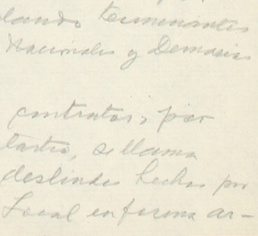 lando terminantes
Nacionales y Demasias
contratos, por
tanto, se llama
deslindes hechos por
Local en forma ar-